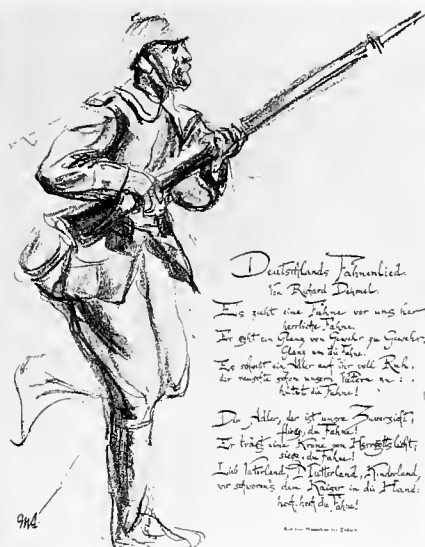 Deutschlands Fahnenlied.
Von Richard Dehmel.
Es zieht eine Fahne vor uns her
herrliche Fahne.
Er geht ein Glanz von Gewehr zu Gewehr,
Glanz um die Fahne.
Es schwebt ein Adler auf ihr voll Ruh,
der rauschte schon unsern Vätern zu:
hütet die Fahne!
Der Adler, der ist unsre Zuversicht,
fliege, du Fahne!
Er trägt eine Krone von Herrgottslicht,
siege, du Fahne!
Lieb Vaterland, Mutterland, Kinderland,
wir schworen's dem Kaiser in die Hand:
hoch, hoch die Fahne!